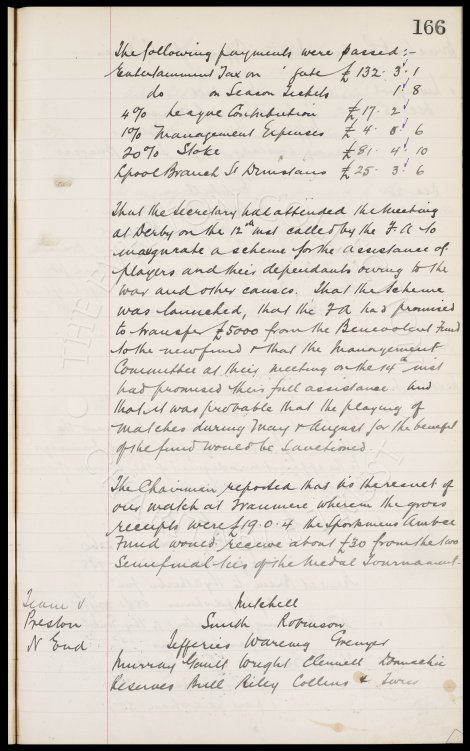 166
The following payments were passed:-
Entertainment Tax on gate £132. 3. 1
do on Season Tickets 1. 8
4% League Contribution £17. 2
1% Management Expenses £4. 8. 6
20% Stoke £81. 4. 10
Lpool Branch St Dunstans £25. 3. 6
That the Secretary had attended the Meeting
at Derby on the 12th inst called by the F.A to
inaugurate a scheme for the assistance of
players and their dependants owing to the
war and other causes. That the Scheme
was launched, that the FA had promised
to transfer £5000 from the Benevolent Fund
to the new fund & that the Management
Committee at their meeting on the 14th inst
had promised their full assistance. And
that it was probable that the playing of
matches during May & August for the benefit
of the fund would be sanctioned.
The Chairman reported that as the result of
our match at Tranmere wherein the gross
receipts were £19.0.4 the Sportsmens Ambce
Fund would receive about £30 from the two
Semifinal ties of the Medal Tournament.
Team v
Preston
N End
Mitchell
Smith Robinson
Jefferies Wareing Grenyer
Murray Gault Wright Clennell Donnachie
Reserves Bull Riley Collins &